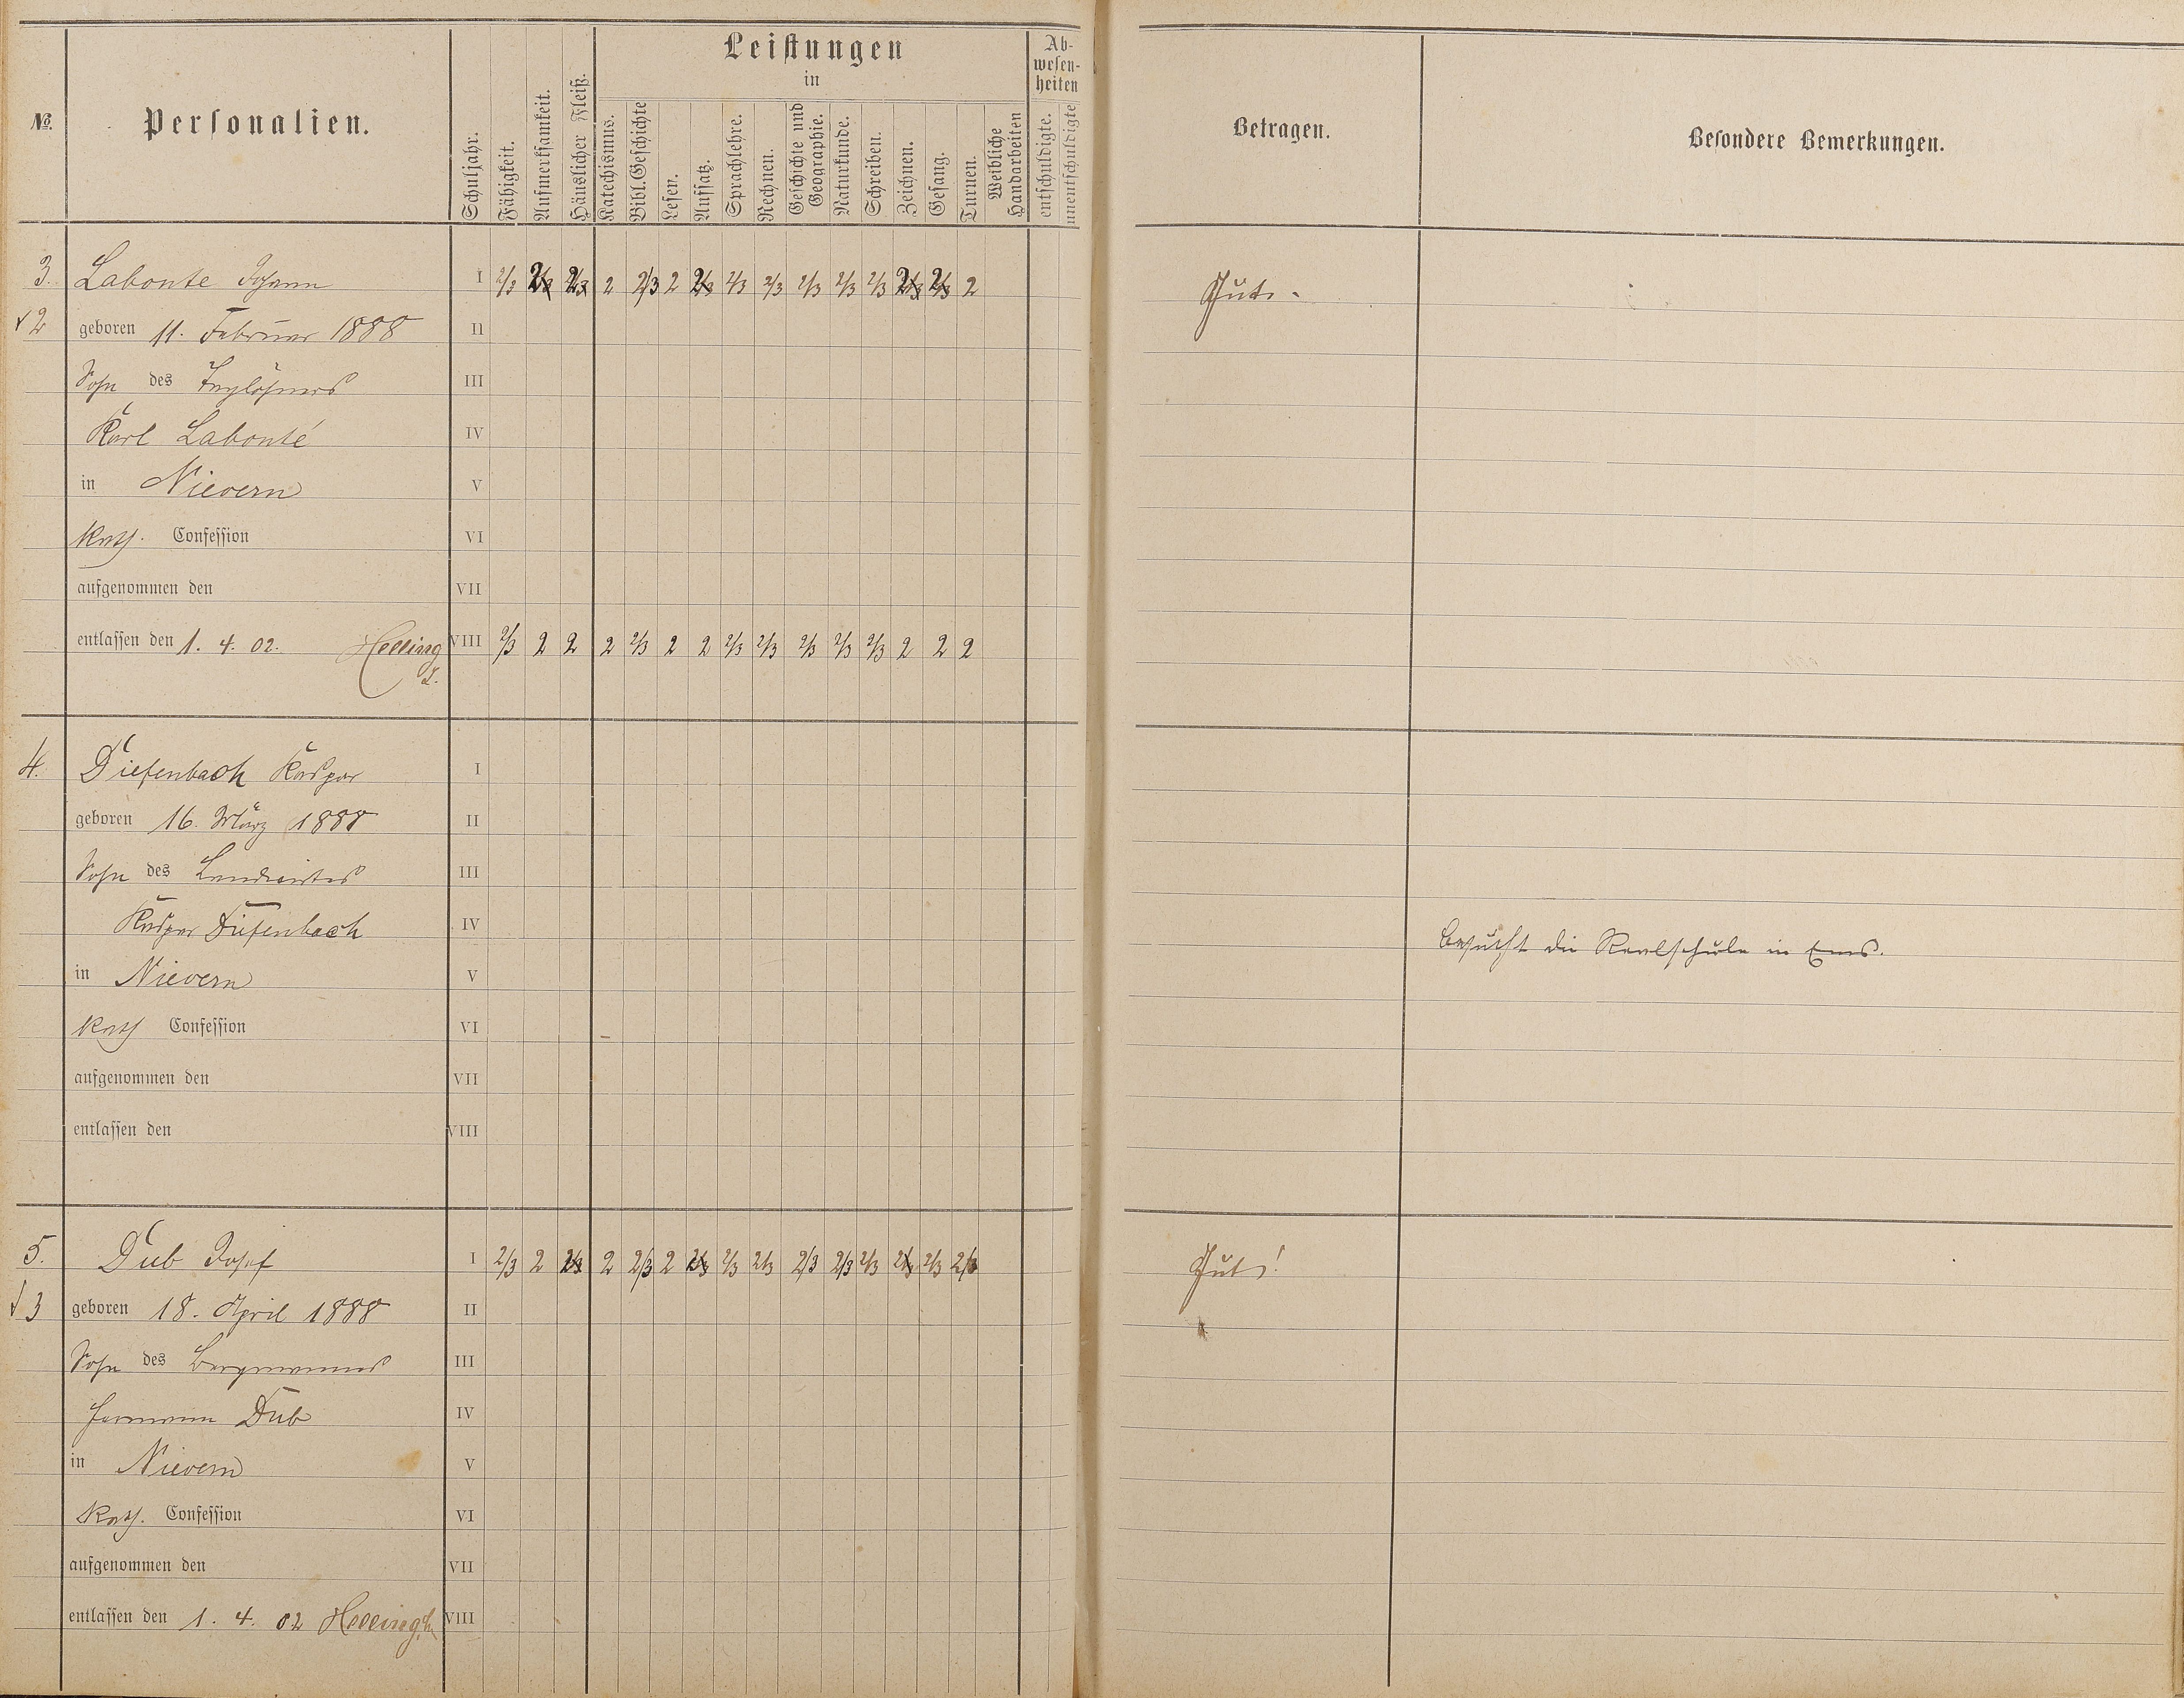 Leistungen
in
Ab-
wesen-
heiten
№.
Personalien.
Schuljahr.
Fähigkeit.
Aufmerksamkeit.
Häuslicher Fleiß.
Katechismus.
Bibl. Geschichte
Lesen.
Aufsatz.
Sprachlehre.
Rechnen.
Geschichte und
Geographie.
Naturkunde.
Schreiben.
Zeichnen.
Gesang.
Turnen.
Weibliche
Handarbeiten
entschuldigte.
unentschuldigte
Betragen.
Besondere Bemerkungen.
3. Labonte Johann I 2/3 2 2 2 2/3 2 2 2/3 2/3 2/3 2/3 2/3 2 2 2 Gut.
2 geboren 11. Februar 1888 II
Sohn des Taglöhners III
Karl Labonté IV
in Nievern V
Kath. Confession VI
aufgenommen den VII
entlassen den 1. 4. 02. Helling VIII 2/3 2 2 2 2/3 2 2 2/3 2/3 2/3 2/3 2/3 2 2 2
L.
4. Diefenbach Kaspar I
geboren 16. März 1888 II
Sohn des Landwirtes III
Kaspar Diefenbach IV
besucht die Realschule in Ems.
in Nievern V
Kath Confession VI
aufgenommen den VII
entlassen den VIII
5. Dub Josef I 2/3 2 2 2 2/3 2 2 2/3 2/3 2/3 2/3 2/3 2 2/3 2/3 Gut!
3 geboren 18. April 1888 II
Sohn des Bergmannes III
Hermann Dub IV
in Nievern V
Kath. Confession VI
aufgenommen den VII
entlassen den 1. 4. 02 Helling VIII